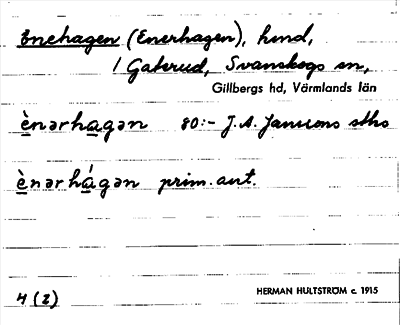 Enehagen (Enerhagen), hmd,
i Gaterud, Svanskogs sn,
Gillbergs hd, Värmlands län
ènərhagən 80:- J.A. Janssons stho
ènərhágən prim. ant.
4 (2)
HERMAN HULTSTRÖM c. 1915